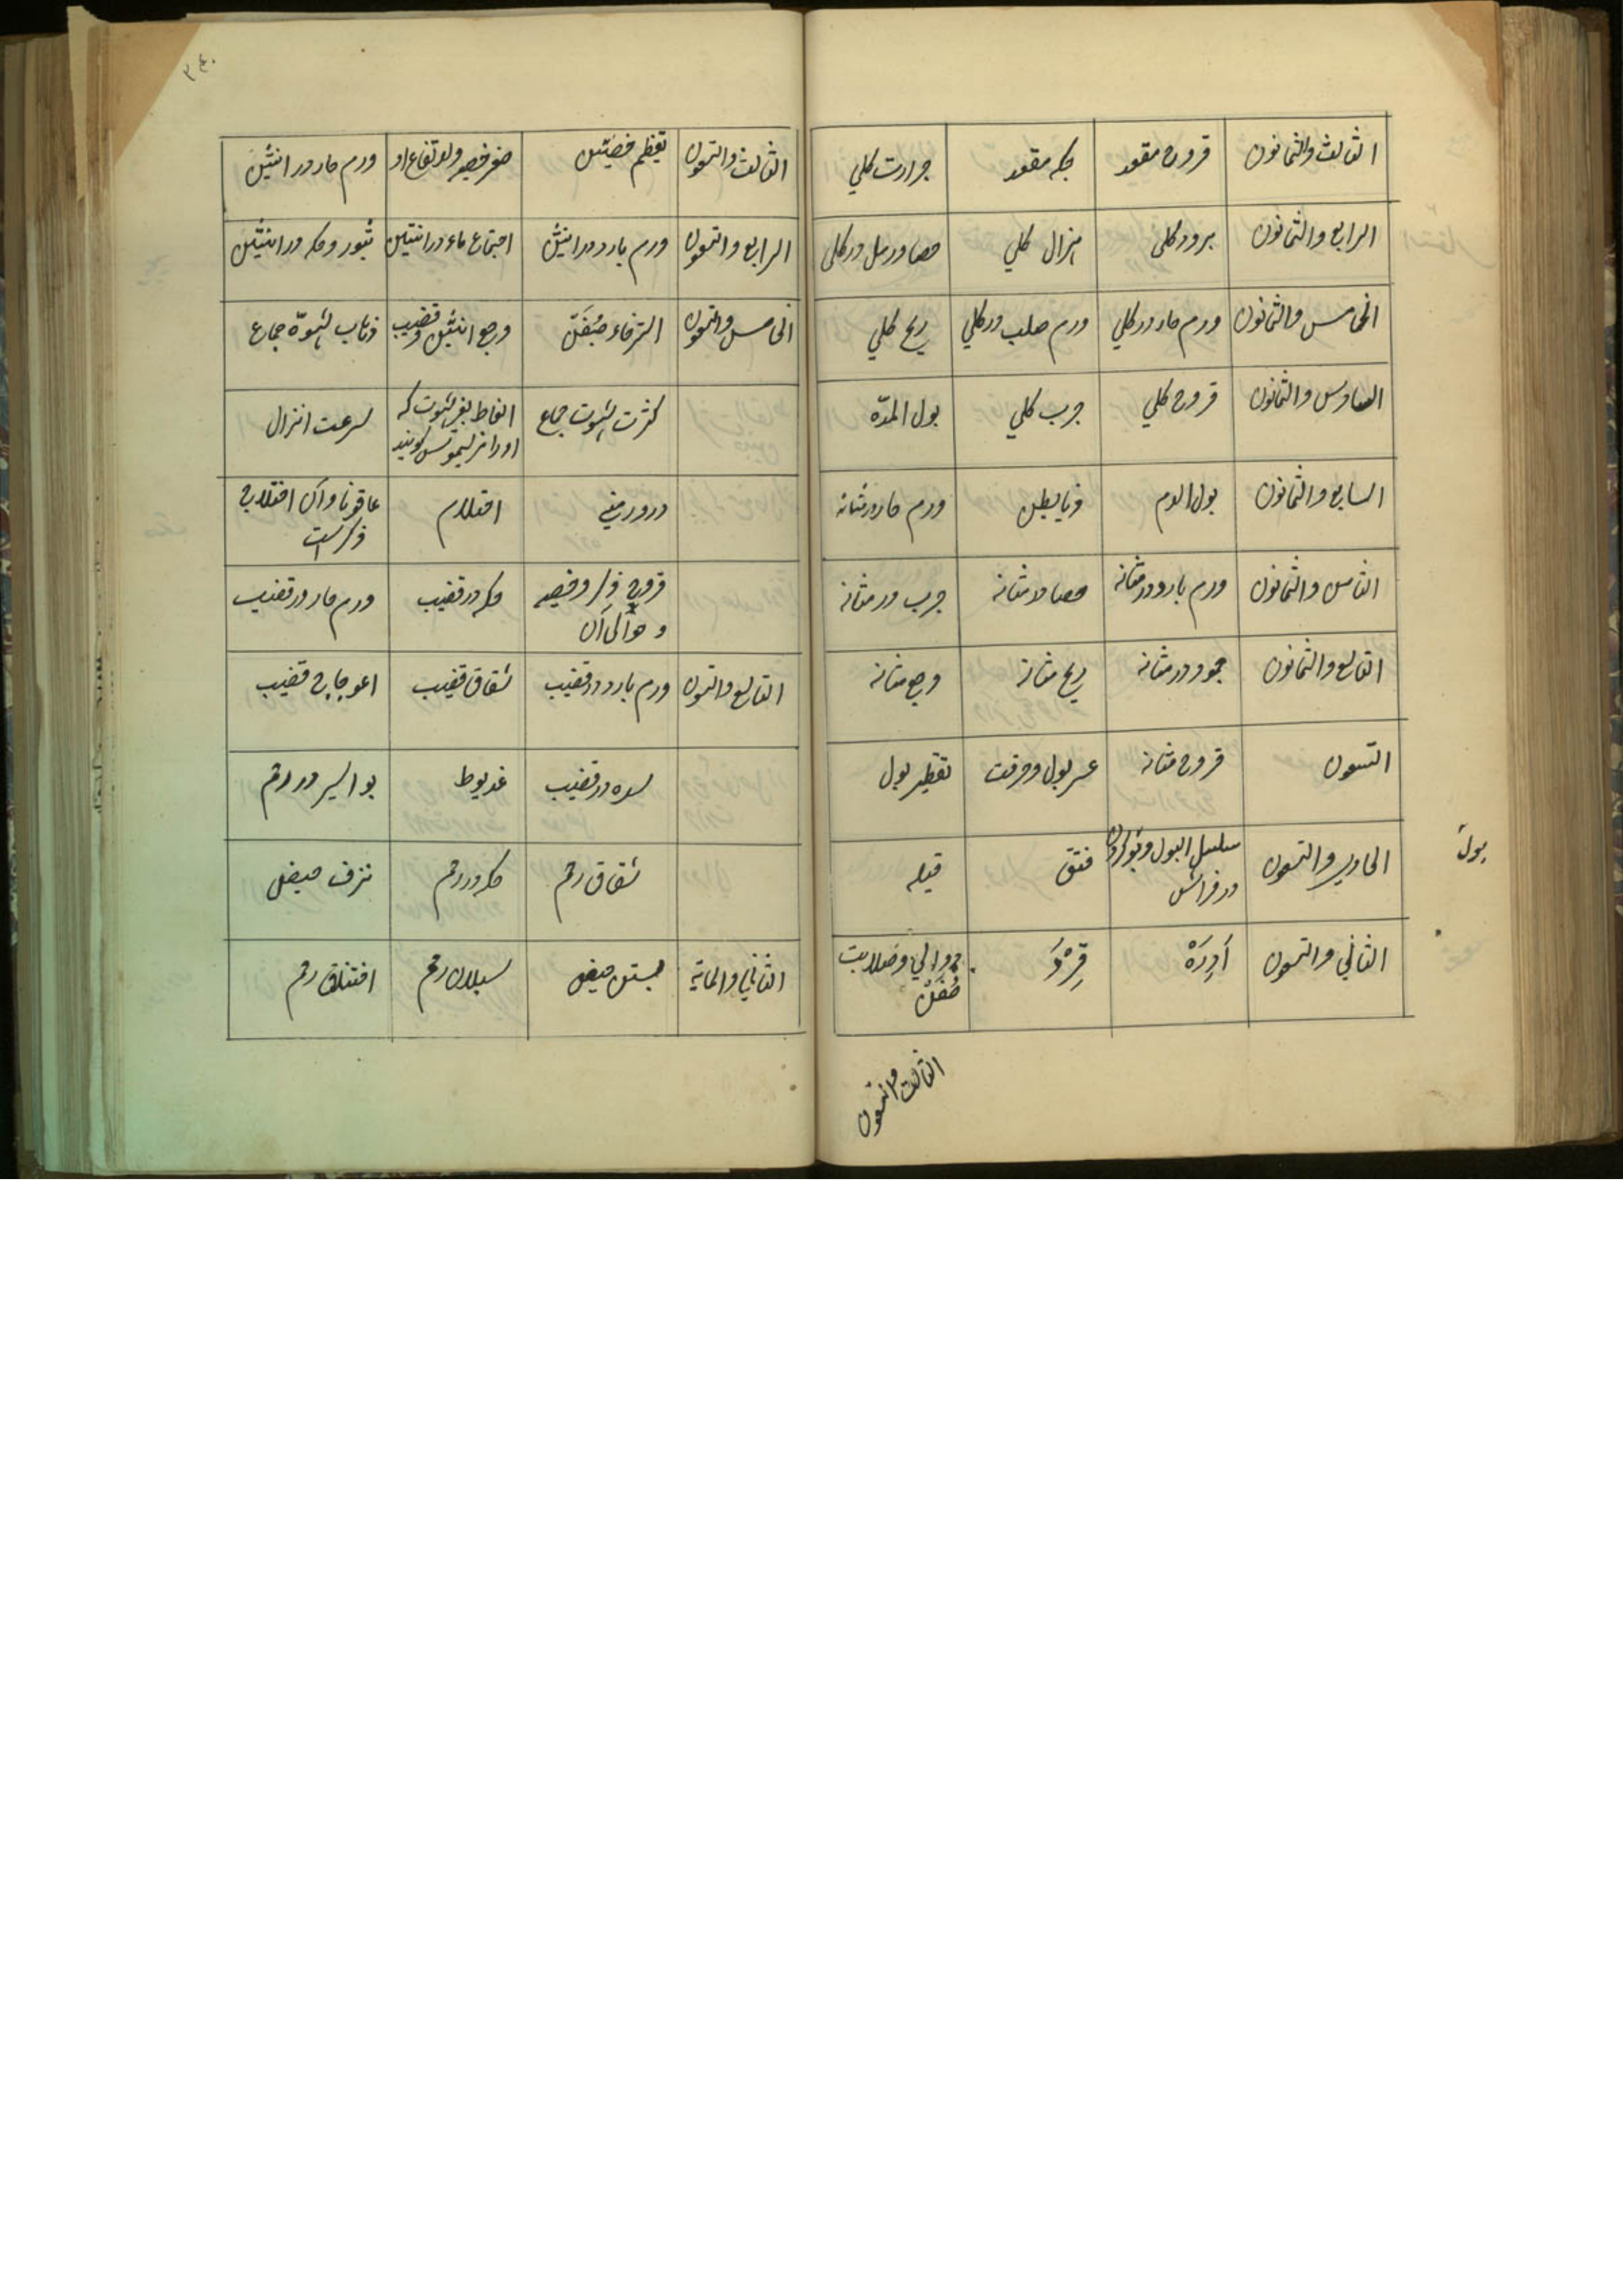 الثالث والثمانون قروح مقعد حكه مقعد حرارت كلي
الرابع والثمانون برود كلى هزال كلي حصا ورمل در كلى
الخامس والثمانون ورم حار در كلي ورم صلب در كلي ريح كلي
السادس والثمانون قروح كلي جرب كلي بول المدّه
السابع والثمانون بول الدم ذيابيطس ورم حار در مثانه
الثامن والثمانون ورم بارد در مثانه حصاة مثانه جرب در مثانه
التاسع والثمانون جمود در مثانه ريح مثانه وجع مثانه
التسعون قروح مثانه عسر بول وحرقت تقطير بول
الحادي والتسعون سلسل البول وبول كردن فتق قيله
در فراش
بول
الثاني والتسعون اَدِرَهْ قِرْوَ دوالي وصلابت
صُفَنْ
الثالث والتسعون
٣٤٠
الثالث والتسعون تعظم خصيتين صغر خصيه وارتفاع او ورم حار در انثيين
الرابع والتسعون ورم بارد در انثيين اجتماع ماء در انثيين بثور وحكه در انثيين
الخامس والتسعون استرخاء صُفَنْ وجع انثيين وقضيب ذهاب شهوة جماع
كثرت شهوت جماع انعاظ بغير شهوت كه سرعت انزال
اورا فريسموس كويند
درور منى احتلام عاقونا وآن اختلاج
ذكر است
قروح ذكر وخصيه حكه در قضيب ورم حار در قضيب
وحوالى آن
التاسع والتسعون ورم بارد در قضيب شقاق قضيب اعوجاج قضيب
سده در قضيب عذيوط بواسير در رحم
شقاق رحم حكه در رحم نزف حيض
الثاني والمايه حبس حيض سيلان رحم اختناق رحم